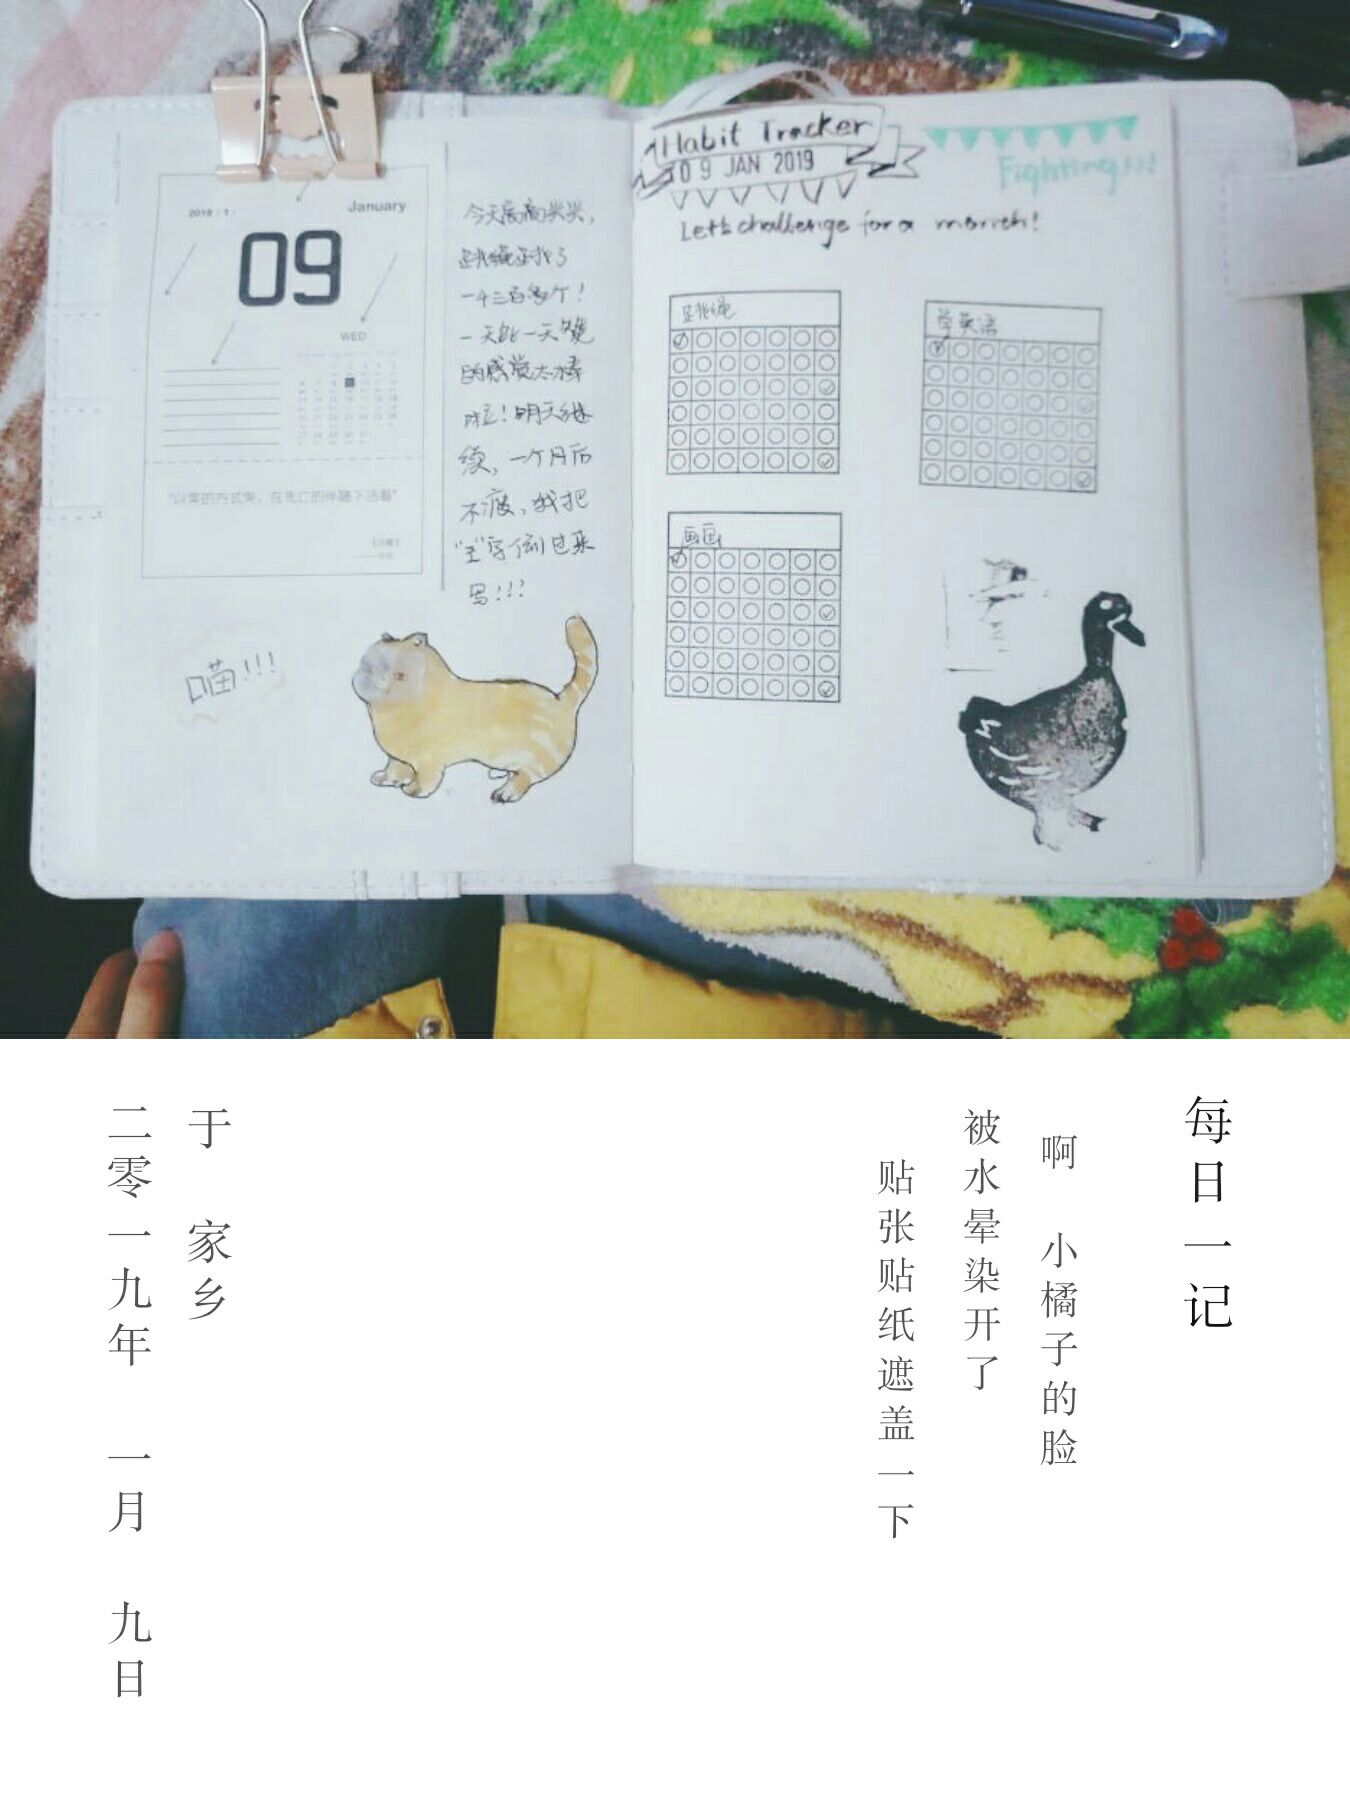 2019 / 1 /
January
09
WED
“以笑的方式哭，在死亡的伴随下活着”
今天高高兴兴，
跳绳跳了
一千三百多个！
一天比一天
的感觉太棒
啦！明天继
续，一个月后
不瘦，我把
“王”字倒过来
写！！！
喵!!!
Habit Tracker
09 JAN 2019
Fighting!!!
Let's challenge for a month!
跳绳
学英语
画画
每日一记
啊 小橘子的脸
被水晕染开了
贴张贴纸遮盖一下
于 家乡
二零一九年 一月 九日